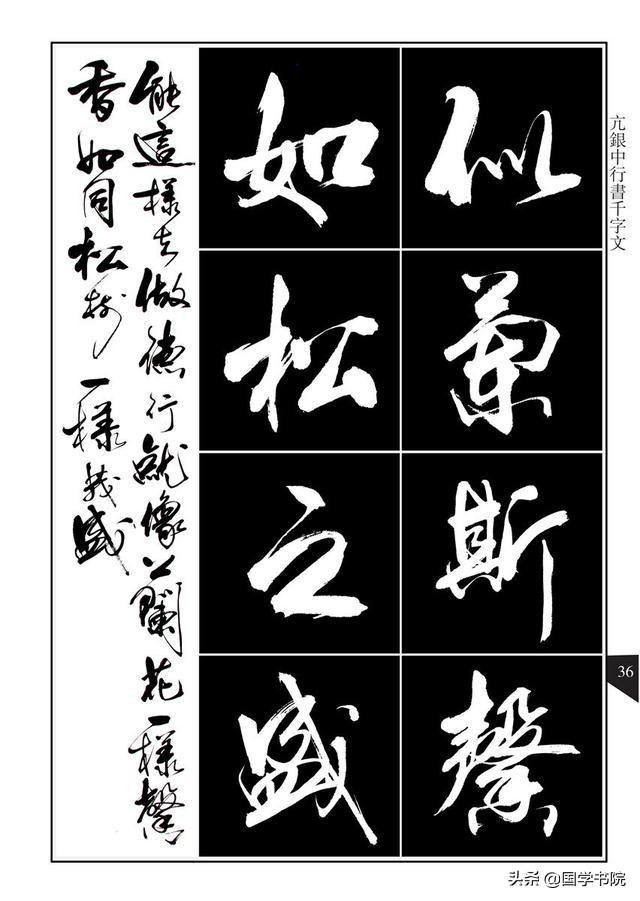 亢銀中行書千字文
似蘭斯馨
如松之盛
能這樣去做德行就像蘭花一樣馨
香如同松樹一樣茂盛
36
头条 @国学书院